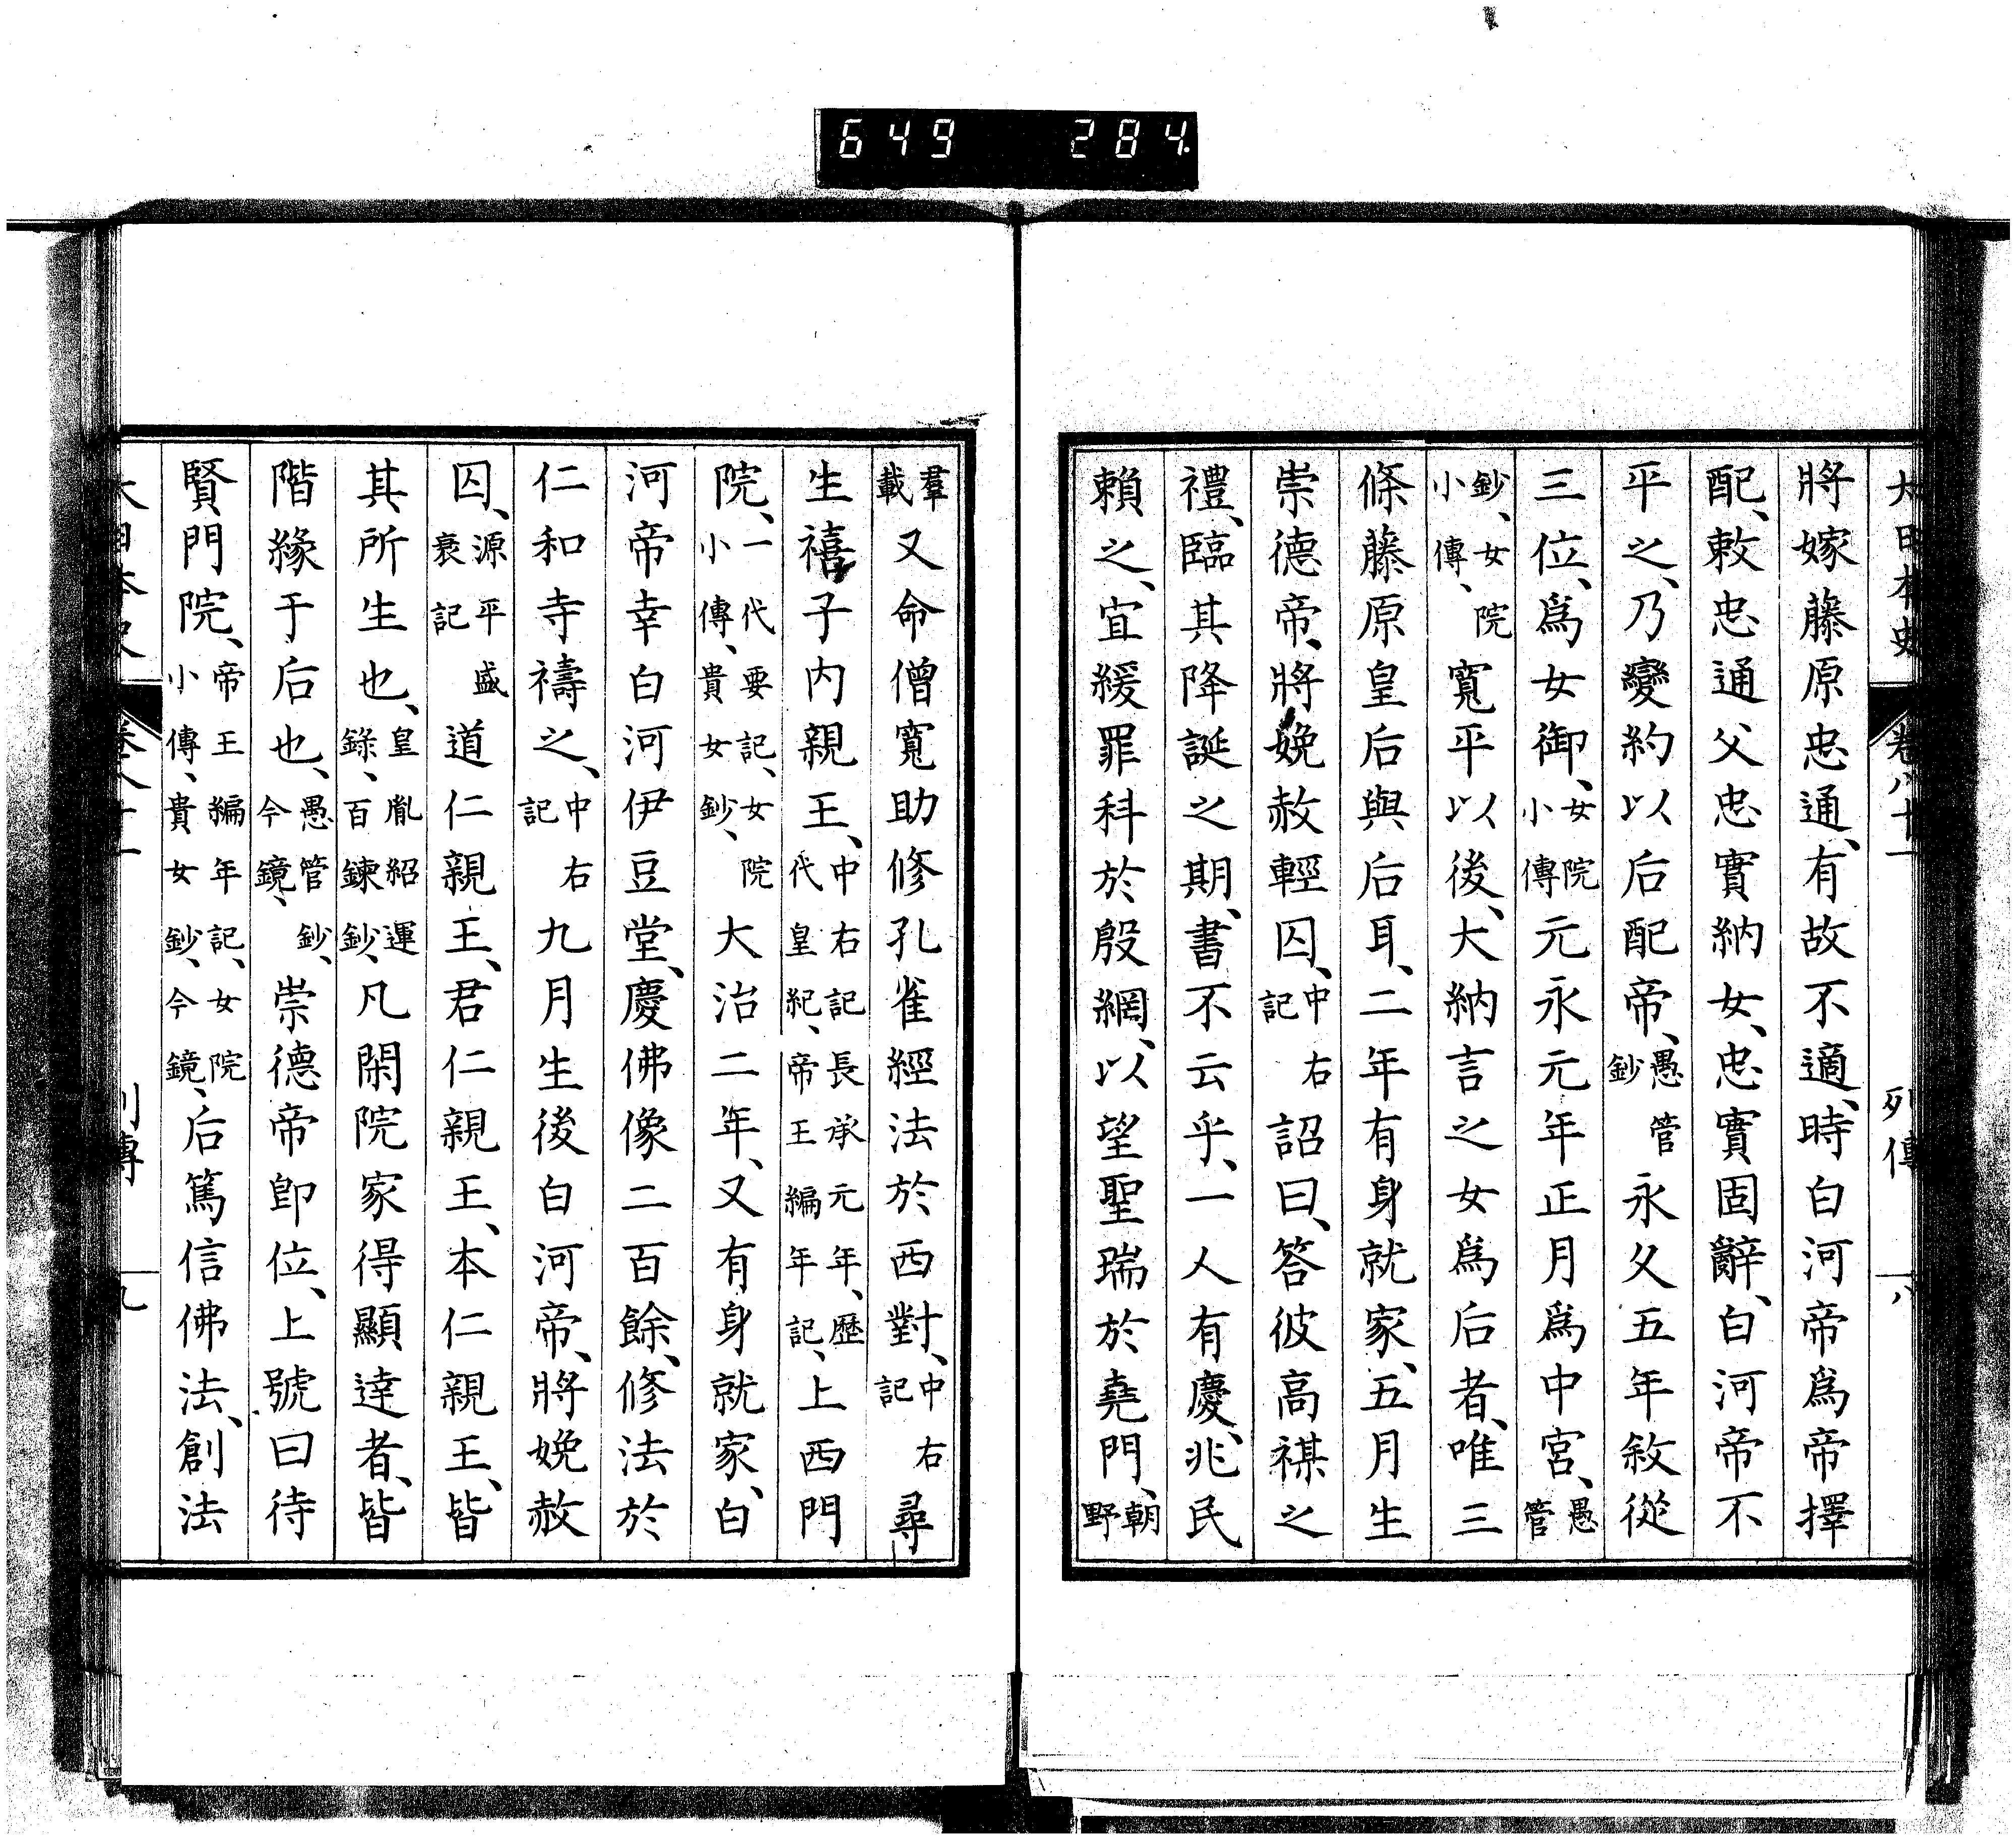 649 284
大日本史 卷八十一 列傳 八
將嫁藤原忠通、有故不適、時白河帝爲帝擇
配、敕忠通父忠實納女、忠實固辭、白河帝不
平之、乃變約以后配帝、愚管鈔永久五年敘從
三位、爲女御、女院小傳元永元年正月爲中宮、愚管
鈔、女院小傳、寬平以後、大納言之女爲后者、唯三
條藤原皇后與后耳、二年有身就家、五月生
崇德帝、將娩赦輕囚、中右記詔曰、答彼高禖之
禮、臨其降誕之期、書不云乎、一人有慶、兆民
賴之、宜緩罪科於殷網、以望聖瑞於堯門、朝野
羣載又命僧寬助修孔雀經法於西對、中右記尋
生禧子内親王、中右記長承元年、歷代皇紀、帝王編年記、上西門
院、一代要記、女院小傳、貴女鈔、大治二年、又有身就家、白
河帝幸白河伊豆堂、慶佛像二百餘、修法於
仁和寺禱之、中右記九月生後白河帝、將娩赦
囚、源平盛衰記道仁親王、君仁親王、本仁親王、皆
其所生也、皇胤紹運錄、百鍊鈔、凡閑院家得顯達者、皆
階緣于后也、愚管鈔、今鏡、崇德帝卽位、上號曰待
賢門院、帝王編年記、女院小傳、貴女鈔、今鏡、后篤信佛法、創法
大日本史 卷八十一 列傳 九